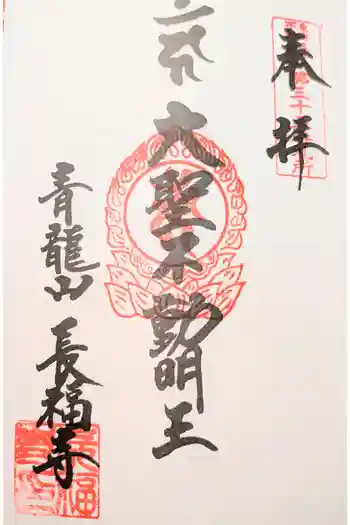 奉拝
大聖不動明王
青龍山
長福寺